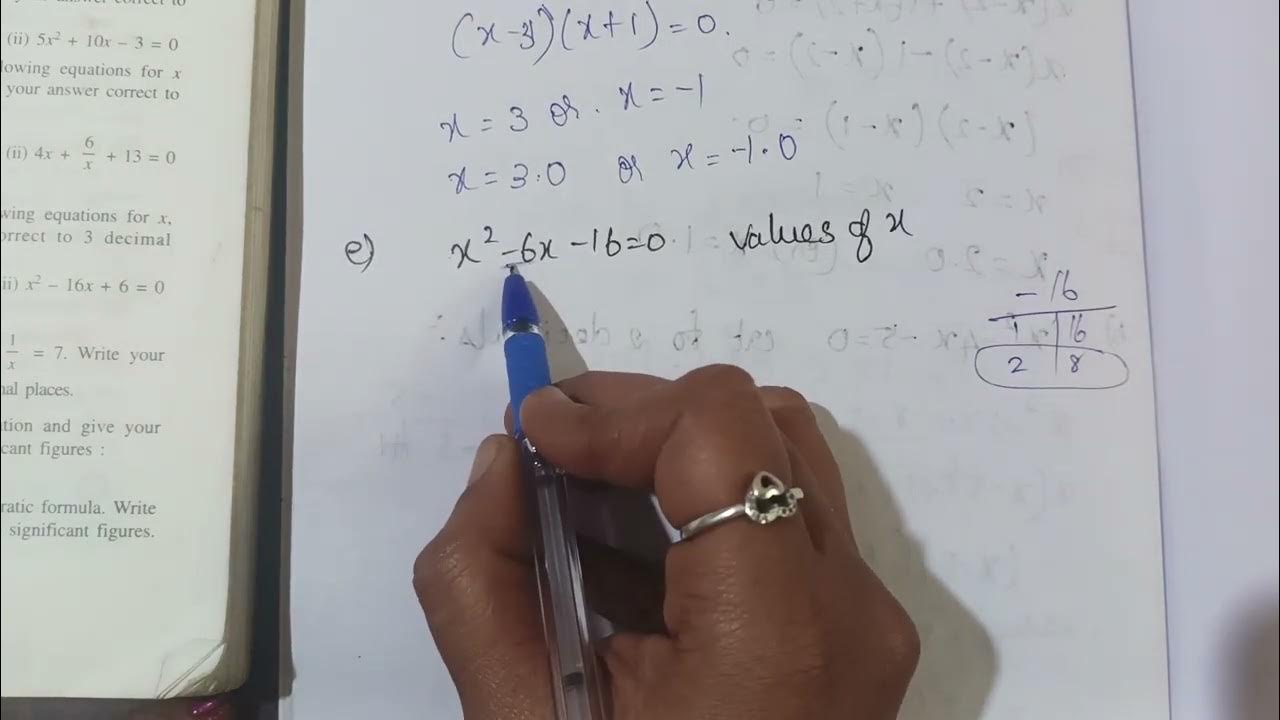 (ii) 5x² + 10x – 3 = 0
lowing equations for x
your answer correct to
(ii) 4x + 6/x + 13 = 0
wing equations for x,
orrect to 3 decimal
ii) x² – 16x + 6 = 0
1/x = 7. Write your
nal places.
ation and give your
cant figures :
ratic formula. Write
significant figures.
(x-3)(x+1)=0.
x = 3 or. x = -1
x = 3.0 or x = -1.0
e) x² -6x -16=0 values of x
-16
1 16
2 8